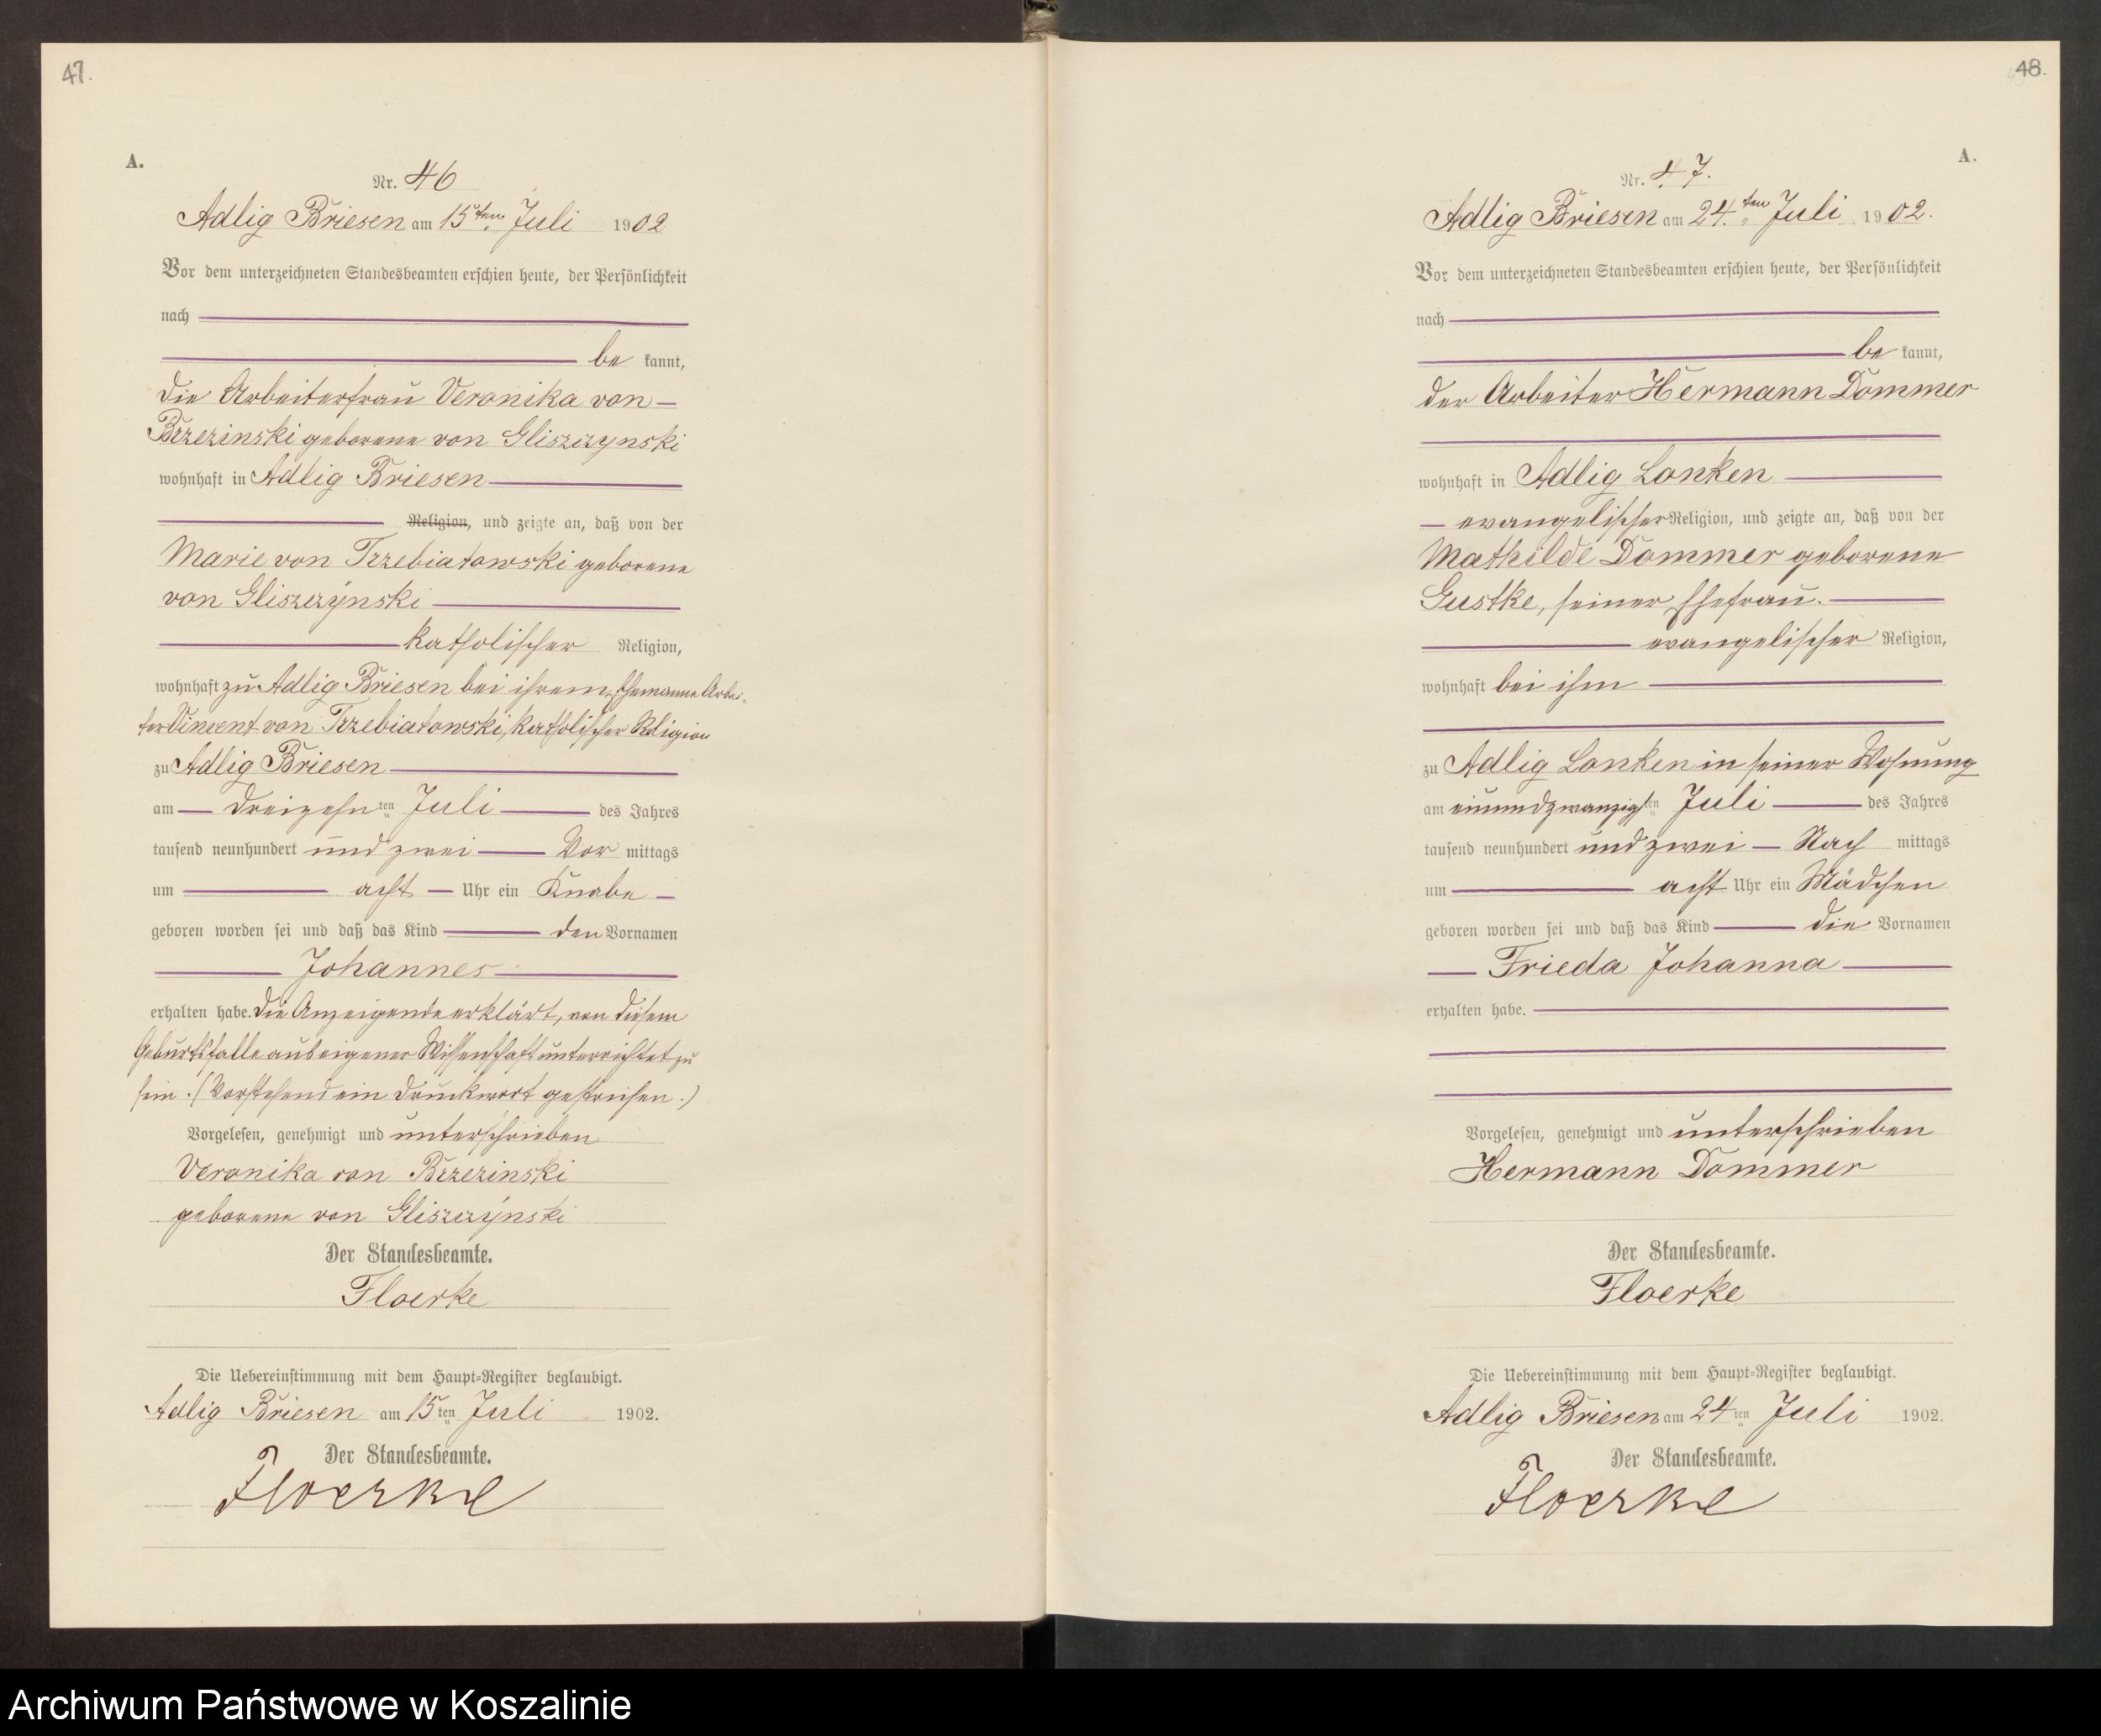 47.
A.
Nr. 46
Adlig Briesen am 15ten Juli 1902
Vor dem unterzeichneten Standesbeamten erschien heute, der Persönlichkeit
nach
be kannt,
die Arbeiterfrau Veronika von
Brzezinski geborene von Gliszczynski
wohnhaft in Adlig Briesen
Religion, und zeigte an, daß von der
Marie von Trzebiatowski geborene
von Gliszczynski
katholischer Religion,
wohnhaft zu Adlig Briesen bei ihrem Ehemanne Arbei-
ter Vincent von Trzebiatowski, katholischer Religion
zu Adlig Briesen
am dreizehnten Juli des Jahres
tausend neunhundert und zwei Vor mittags
um acht Uhr ein Knabe
geboren worden sei und daß das Kind den Vornamen
Johannes
erhalten habe. Die Anzeigende erklärt, von diesem
Geburtsfalle aus eigener Wissenschaft unterrichtet zu
sein. (Vorstehend ein Druckwort gestrichen.)
Vorgelesen, genehmigt und unterschrieben
Veronika von Brzezinski
geborene von Gliszczynski
Der Standesbeamte.
Floerke
Die Uebereinstimmung mit dem Haupt-Register beglaubigt.
Adlig Briesen am 15ten Juli 1902.
Der Standesbeamte.
Floerke
48.
A.
Nr. 47.
Adlig Briesen am 24.ten Juli 1902.
Vor dem unterzeichneten Standesbeamten erschien heute, der Persönlichkeit
nach
be kannt,
der Arbeiter Hermann Dommer
wohnhaft in Adlig Lonken
evangelischer Religion, und zeigte an, daß von der
Mathilde Dommer geborene
Gustke, seiner Ehefrau.
evangelischer Religion,
wohnhaft bei ihm
zu Adlig Lonken in seiner Wohnung
am einundzwanzigsten Juli des Jahres
tausend neunhundert und zwei Nach mittags
um acht Uhr ein Mädchen
geboren worden sei und daß das Kind die Vornamen
Frieda Johanna
erhalten habe.
Vorgelesen, genehmigt und unterschrieben
Hermann Dommer
Der Standesbeamte.
Floerke
Die Uebereinstimmung mit dem Haupt-Register beglaubigt.
Adlig Briesen am 24ten Juli 1902.
Der Standesbeamte.
Floerke
Archiwum Państwowe w Koszalinie